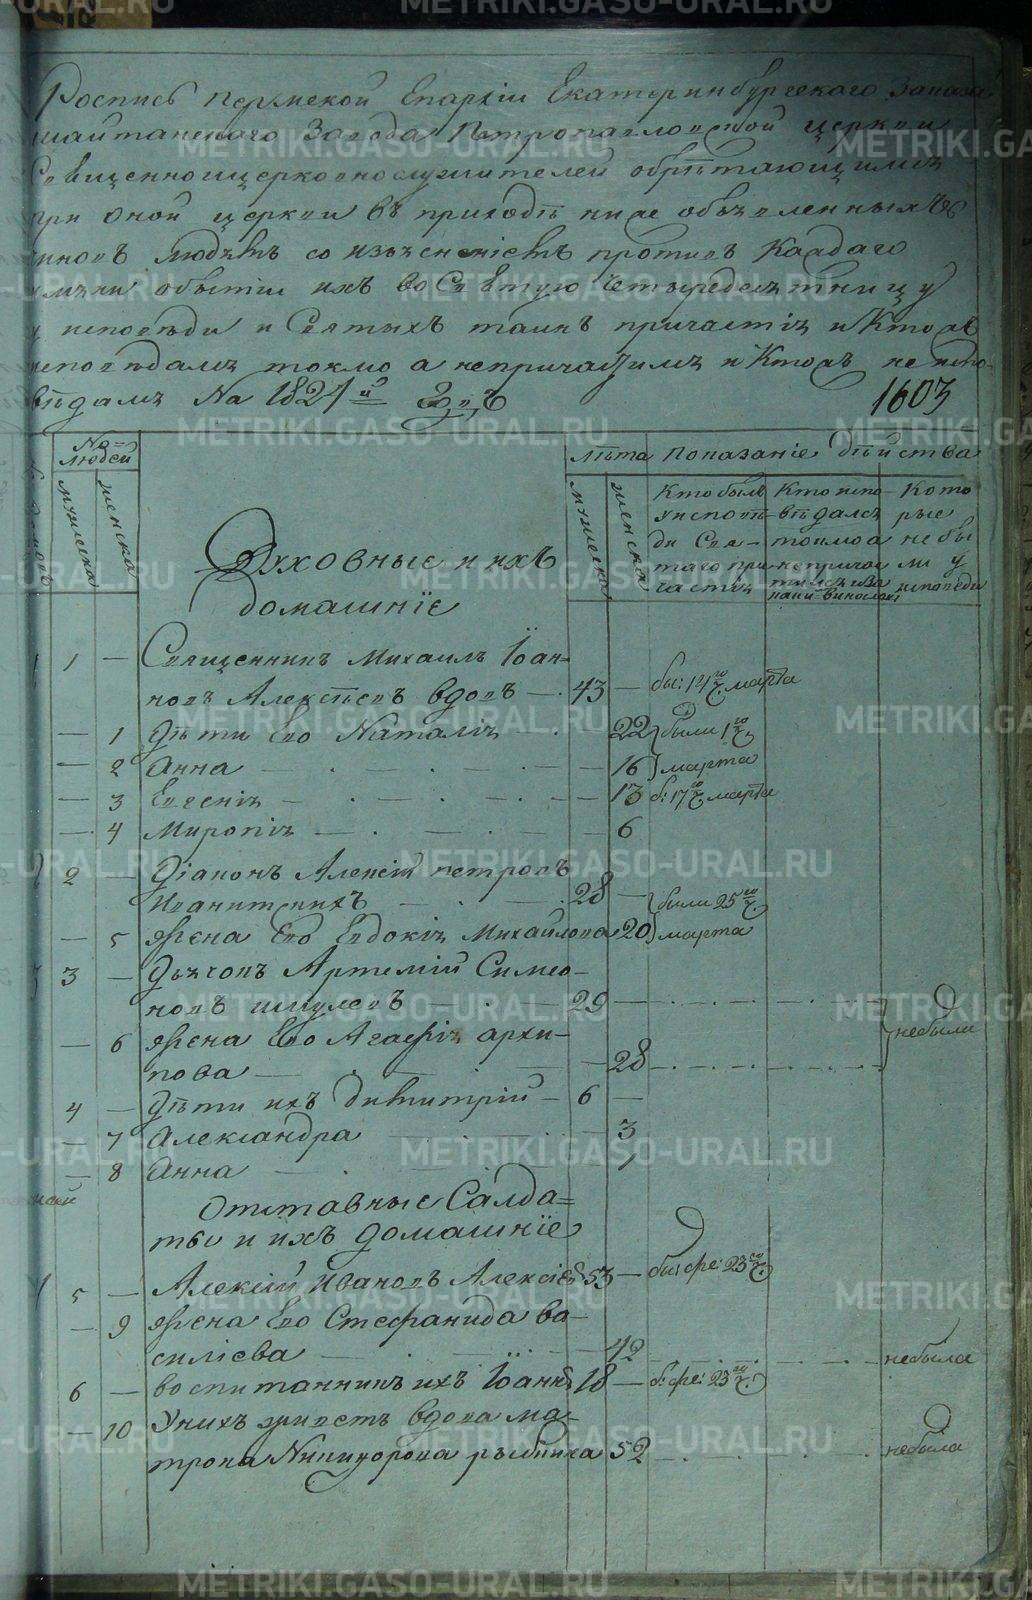 Роспись Пермской Епархіи Екатеринбургскаго Заказа
Шайтанскаго Завода Петропавловской церкви
Священноицерковнослужителей обрѣтающимся
при оной церкви въ приходѣ ниже объявленныхъ
чиновъ людѣхъ со изъясненіемъ противъ Каждаго
имяни обытіи ихъ во Святую Четыредесятницу
у исповѣди и Святыхъ таинъ причастіи и Ктожъ
исповѣдался токмо а непричастился и Ктожъ не испо-
вѣдался На 1824й Годъ 1603
№ людей
мужеска
женска
Лѣта
мужеска
женска
Показаніе Дѣйства
Кто былъ у исповѣди и Святаго причастія
Кто исповѣдался токмо а непричастился и за какимъ винословіемъ
Которые не были у исповѣди
Духовные и ихъ
домашніе
1 1 — Священникъ Михаилъ Іоан-
новъ Алексѣевъ вдовъ — 43 — бы: 14го Ч. марта
— 1 Дѣти Его Наталія 22 были 1го Ч.
— 2 Анна — 16 марта
— 3 Евгенія — 13 б: 17го Ч. марта
— 4 Миропія — 6
2 2 — Діаконъ Алексій петровъ
Иванитскихъ — 28 — были 25го Ч.
— 5 Жена Его Евдокія Михайлова 20 марта
3 3 — Дьячовъ Артемій Симео-
новъ шмулевъ — 29 —
небыли
— 6 Жена Его Агафія архи-
пова — 28
4 — Дѣти ихъ Димитрій — 6 —
— 7 Александра — 3
— 8 Анна — 1
Отставные Салда-
ты и ихъ домашніе
1 5 — Алексій Ивановъ Алексѣевъ 53 — бы: фе: 23го Ч.
— 9 Жена Его Стефанида ва-
силіева — 42 небыла
6 — воспитанникъ ихъ Іоаннъ 18 — б: фе: 23го Ч.
— 10 Унихъ живетъ вдова ма-
трона Никифорова 52 небыла
METRIKI.GASO-URAL.RU